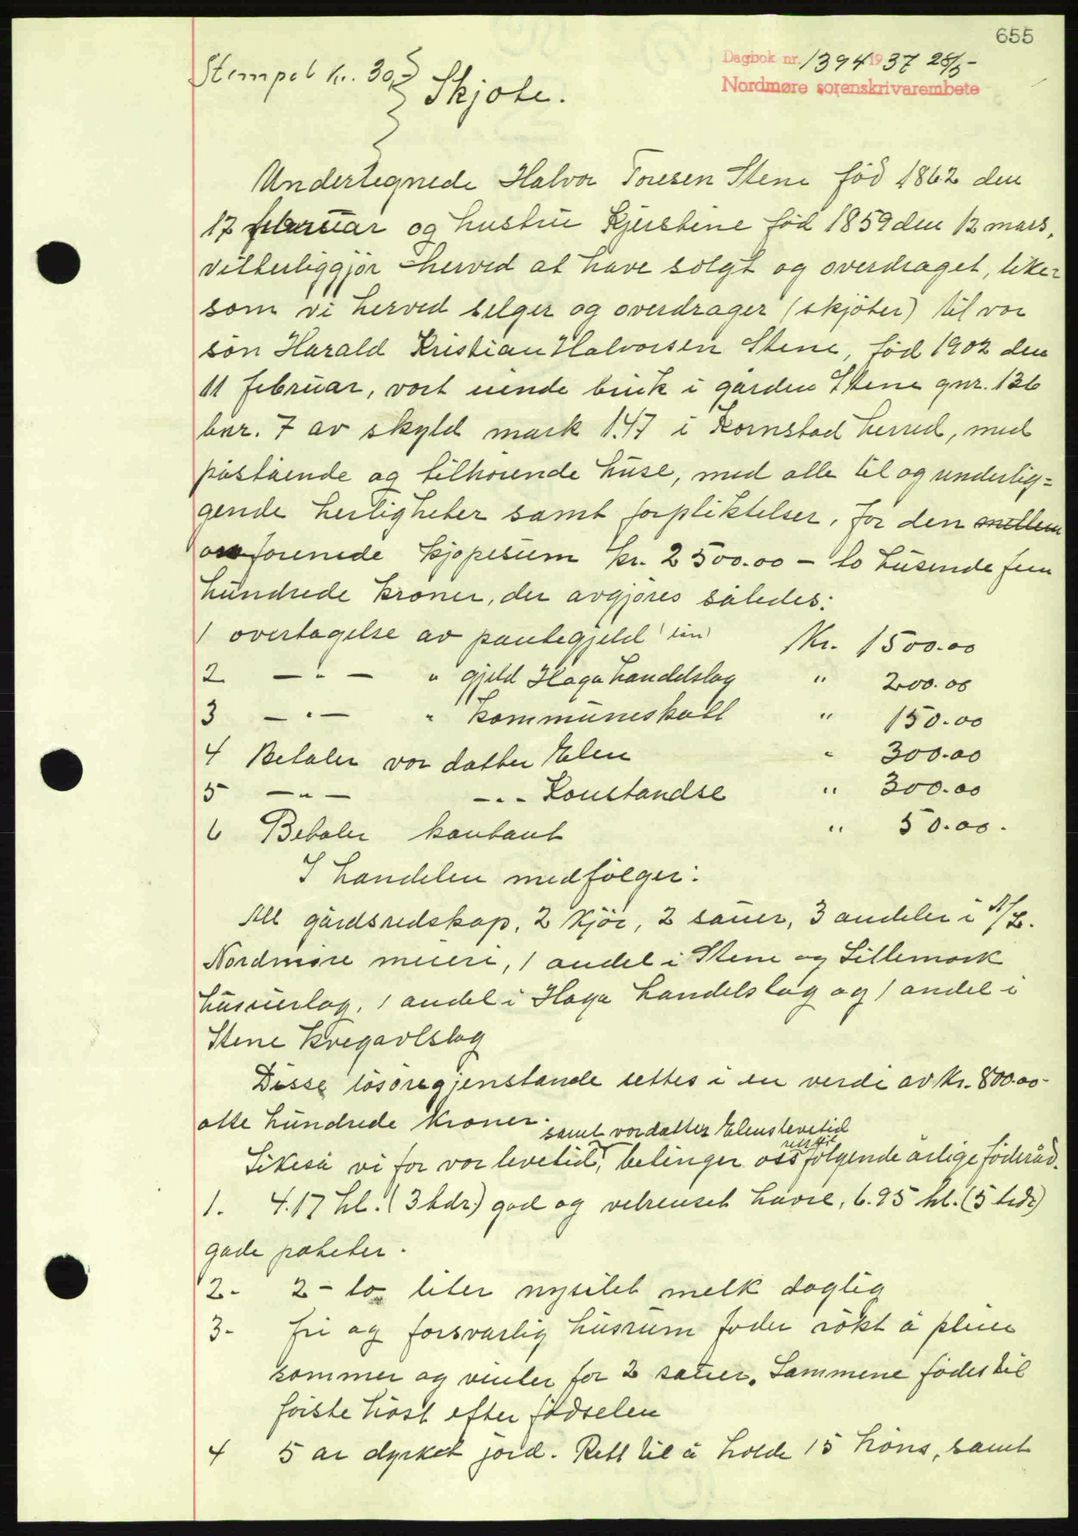 655
Stempel kr. 30,-
Dagbok nr. 1394 1937 28/5-
Nordmøre sorenskrivarembete
Skjøte.
Undertegnede Halvor Toresen Stene född 1862 den
17 februar og hustru Kjerstine föd 1859 den 12 mars,
vitterliggjör herved at have solgt og overdraget, like-
som vi herved selger og overdrager (skjöter) til vor
sön Harald Kristian Halvorsen Stene, föd 1902 den
11 februar, vort eiende bruk i gården Stene gnr. 126
bnr. 7 av skyld mark 1.47 i Kornstad herred, med
påstående og tilhörende huse, med alle til og underlig=
gende herligheter samt forpliktelser, for den mellem
os forenede kjöpesum kr. 2500.00 - to tusende fem
hundrede kroner, der avgjöres således:
1 overtagelse av pantegjeld Kr. 1500.00
2 — " — " gjeld Haga handelslag " 200.00
3 — " — " kommuneskatt " 150.00
4 Betaler vor datter Elen " 300.00
5 — " — — " — Konstandse " 300.00
6 Betaler kontant " 50.00.
I handelen medfölger:
All gårdsredskap, 2 kjör, 2 sauer, 3 andeler i A/L.
Nordmöre meieri, 1 andel i Stene og Lillemork
1 andel i Haga handelslag og 1 andel i
Stene kvegavlslag
Disse lösöregjenstande settes i en verdi av kr. 800.00-
otte hundrede kroner.
samt vor datter Elens levetid
Likeså vi for vor levetid, betinger oss rett til fölgende årlige föderåd.
1. 4.17 hl. (3 tdr.) god og velrenset havre, 6.95 hl. (5 tdr)
gode poteter.
2- 2 - to liter nysilet melk daglig
3- fri og forsvarlig husrum foder rökt å pleie
sommer og vinter for 2 sauer. Lammene födes til
förste höst efter födselen
4 5 ar dyrket jord. Rett til å holde 15 höns, samt